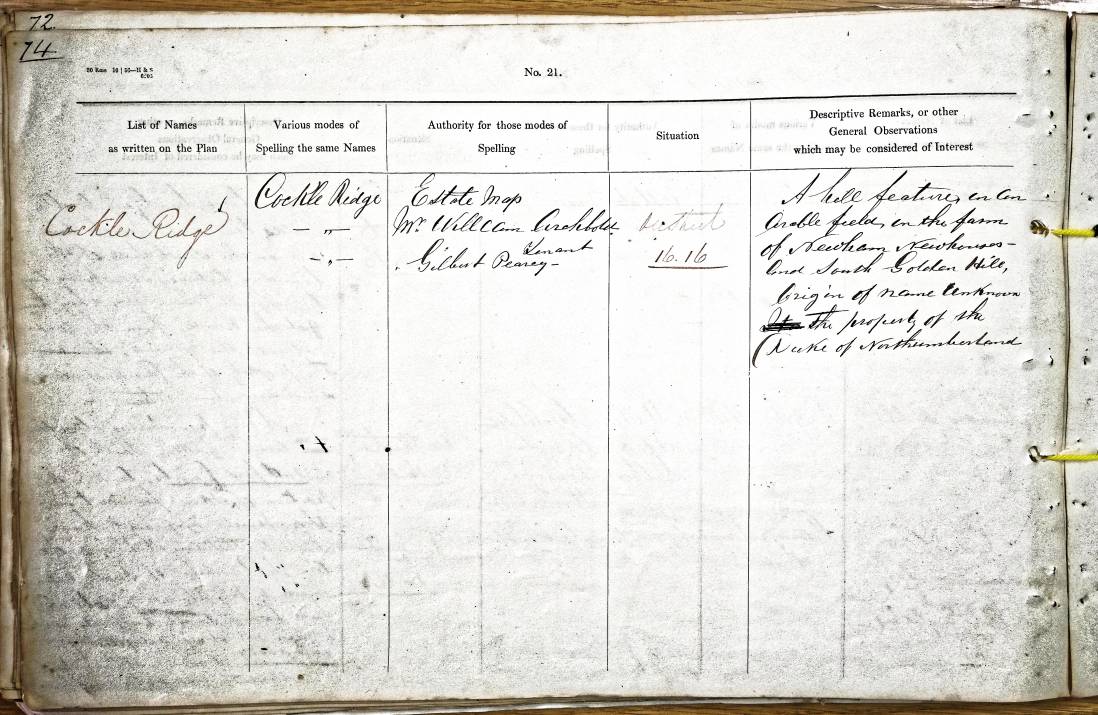 72
74
No. 21.
List of Names
as written on the Plan
Various modes of
Spelling the same Names
Authority for those modes of
Spelling
Situation
Descriptive Remarks, or other
General Observations
which may be considered of Interest
Cockle Ridge
Cockle Ridge
— „ —
— „ —
Estate Map
Mr. William Archbold
Tenant
Gilbert Pearey
16.16
A hill feature, in an
arable field, on the farm
of Newham Newhouses
and South Golden Hill,
Origin of name Unknown
the property of the
Duke of Northumberland